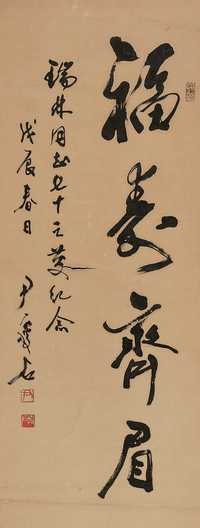 福寿齊眉
瑞林同志七十 纪念
戊辰春日
尹瘦石